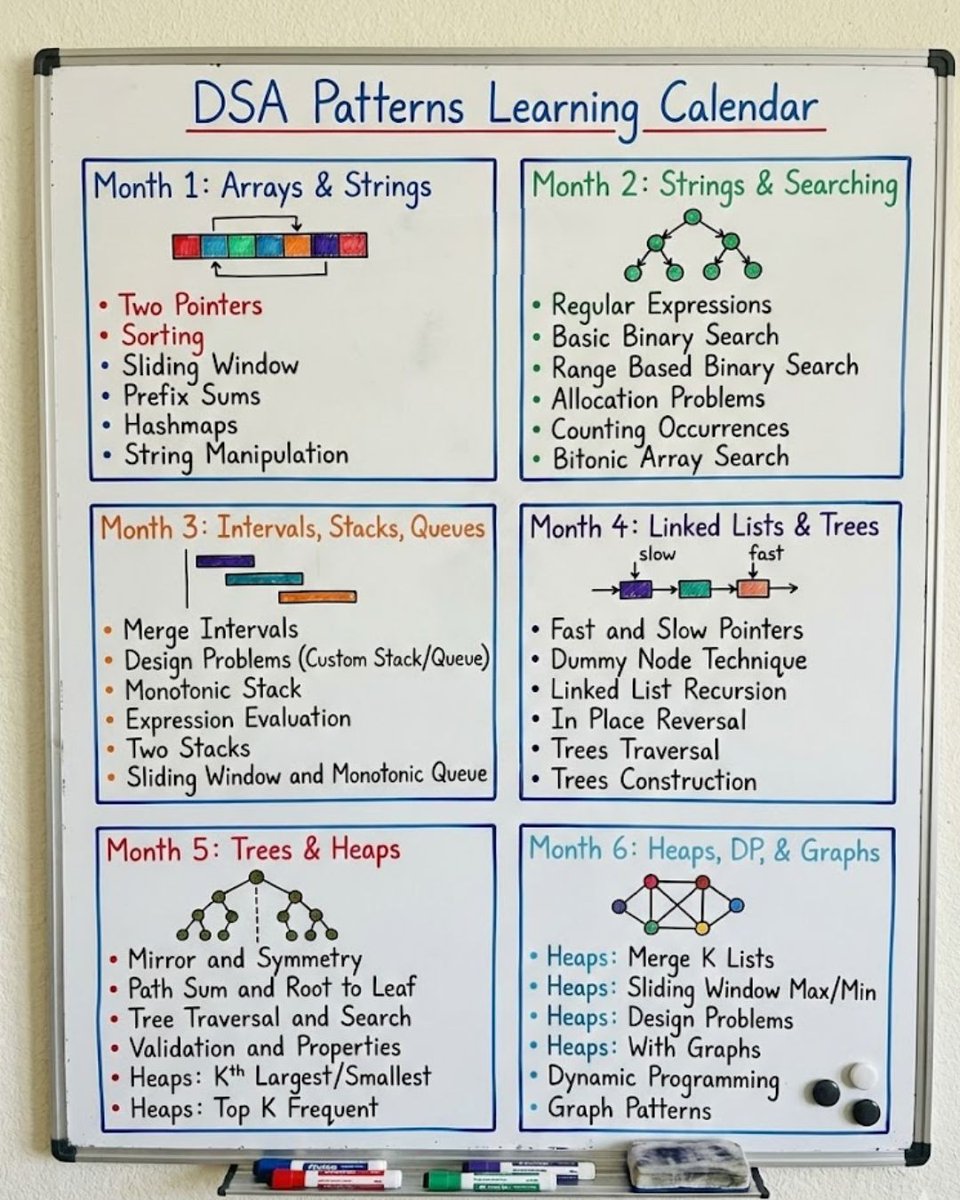 DSA Patterns Learning Calendar
Month 1: Arrays & Strings
• Two Pointers
• Sorting
• Sliding Window
• Prefix Sums
• Hashmaps
• String Manipulation
Month 2: Strings & Searching
• Regular Expressions
• Basic Binary Search
• Range Based Binary Search
• Allocation Problems
• Counting Occurrences
• Bitonic Array Search
Month 3: Intervals, Stacks, Queues
• Merge Intervals
• Design Problems (Custom Stack/Queue)
• Monotonic Stack
• Expression Evaluation
• Two Stacks
• Sliding Window and Monotonic Queue
Month 4: Linked Lists & Trees
slow fast
• Fast and Slow Pointers
• Dummy Node Technique
• Linked List Recursion
• In Place Reversal
• Trees Traversal
• Trees Construction
Month 5: Trees & Heaps
• Mirror and Symmetry
• Path Sum and Root to Leaf
• Tree Traversal and Search
• Validation and Properties
• Heaps: Kᵗʰ Largest/Smallest
• Heaps: Top K Frequent
Month 6: Heaps, DP, & Graphs
• Heaps: Merge K Lists
• Heaps: Sliding Window Max/Min
• Heaps: Design Problems
• Heaps: With Graphs
• Dynamic Programming
• Graph Patterns